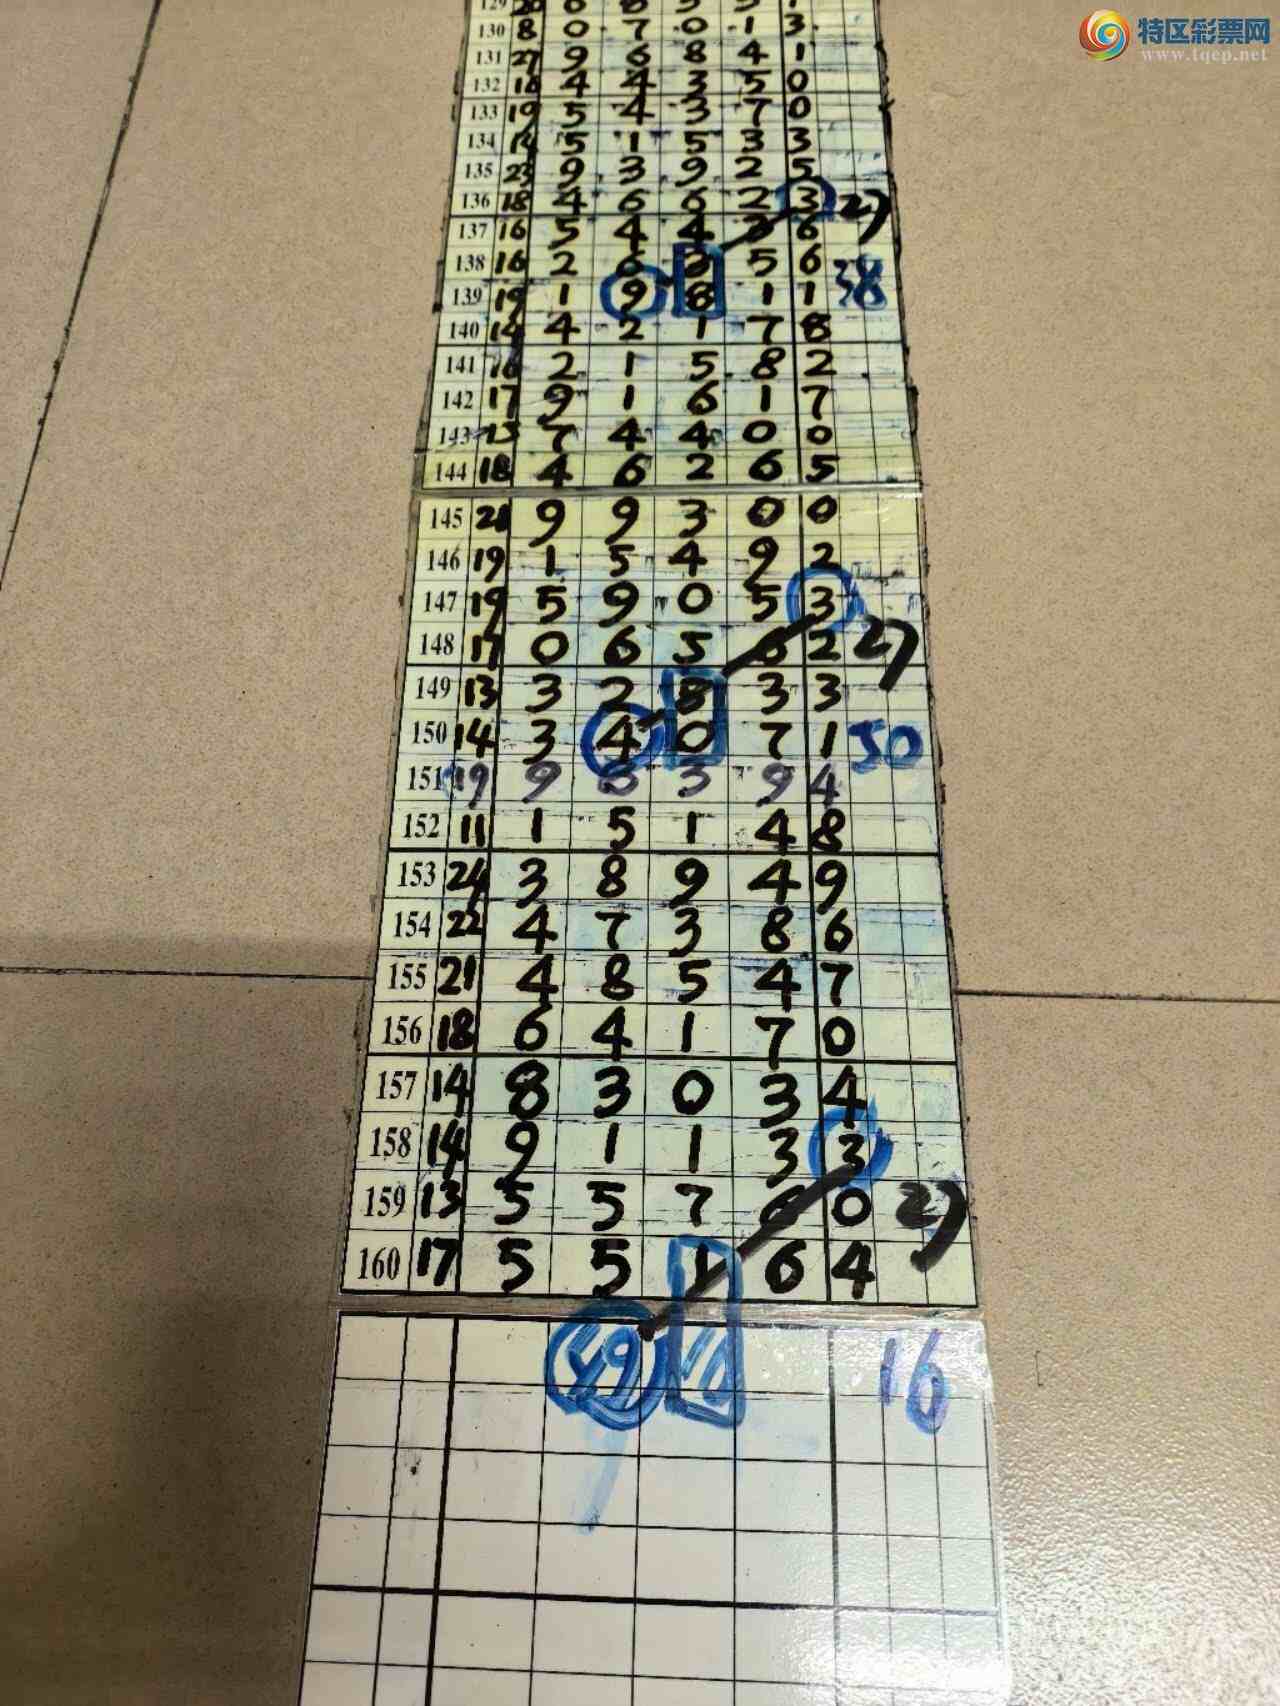 特区彩票网
www.tqcp.net
129 20
130 8 0 7 0 1 3
131 27 9 6 8 4 1
132 16 4 4 3 5 0
133 19 5 4 3 7 0
134 14 5 1 5 3 3
135 23 9 3 9 2 5
136 18 4 6 6 2 3 27
137 16 5 4 4 6
138 16 2 6 3 5 6 38
139 19 1 9 8 1 1
140 14 4 2 1 7 8
141 16 2 1 5 8 2
142 17 9 1 6 1 7
143 15 7 4 4 0 0
144 18 4 6 2 6 5
145 21 9 9 3 0 0
146 19 1 5 4 9 2
147 19 5 9 0 5 3
148 17 0 6 5 6 2 27
149 13 3 2 5 3 3
150 14 3 4 0 7 1 50
151 19 9 3 9 4
152 11 1 5 1 4 8
153 24 3 8 9 4 9
154 22 4 7 3 8 6
155 21 4 8 5 4 7
156 18 6 4 1 7 0
157 14 8 3 0 3 4
158 14 9 1 1 3 3
159 13 5 5 7 6 0 27
160 17 5 5 1 6 4
49 16